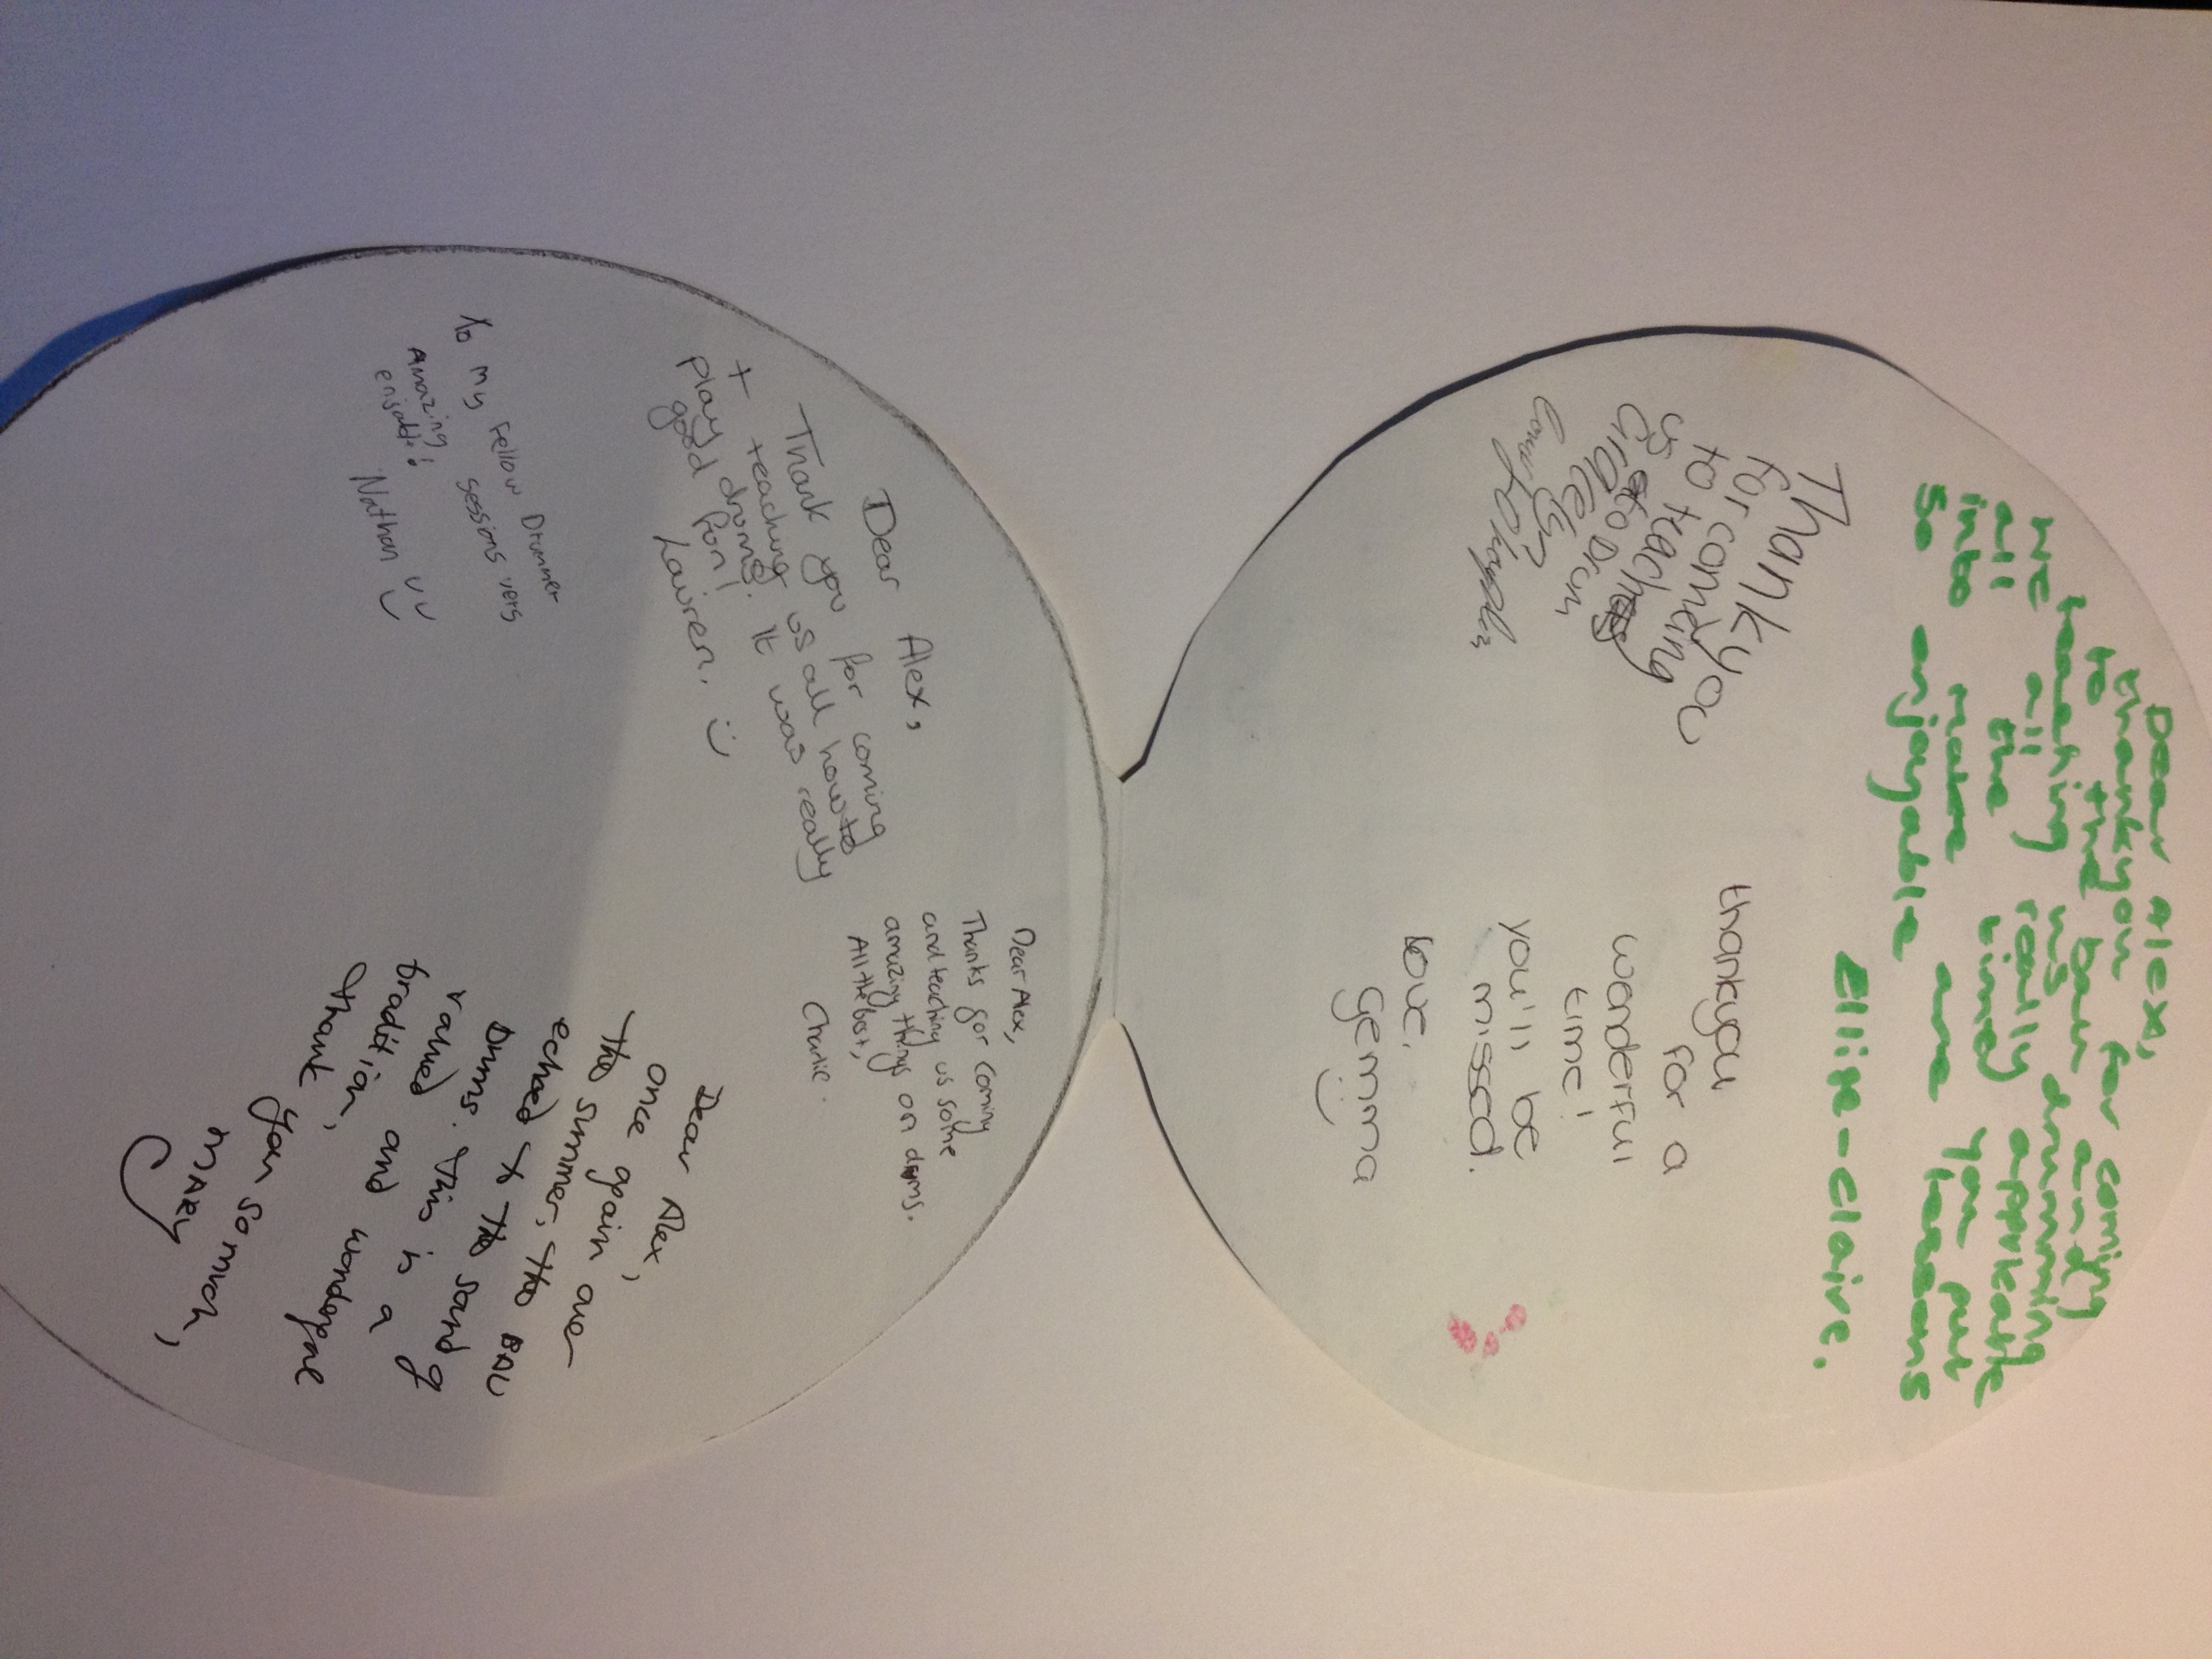 Dear Alex,
thankyou for coming
to the bau and
teaching us drumming
we all really apprikate
all the time you put
into made are lessons
so enjoyable
Ellise-claire.
Thank you
for coming
to teaching
us
to Drum
thankyou
for a
wonderful
time!
you'll be
missed.
love,
Gemma
Dear Alex,
Thank you for coming
+ teaching us all how to
play drums. it was really
good fun!
Lauren. :)
Dear Alex,
Thanks for coming
and teaching us some
amazing things on drums.
All the best,
Charlie.
To my Fellow Drummer
sessions vers
Amazing
enjoable!
Nathan
Dear Alex,
once again over
the summer, the BAU
echoed to the sound of
Drums. This is a
valued and wonderful
tradition,
thank you so much,
MARY